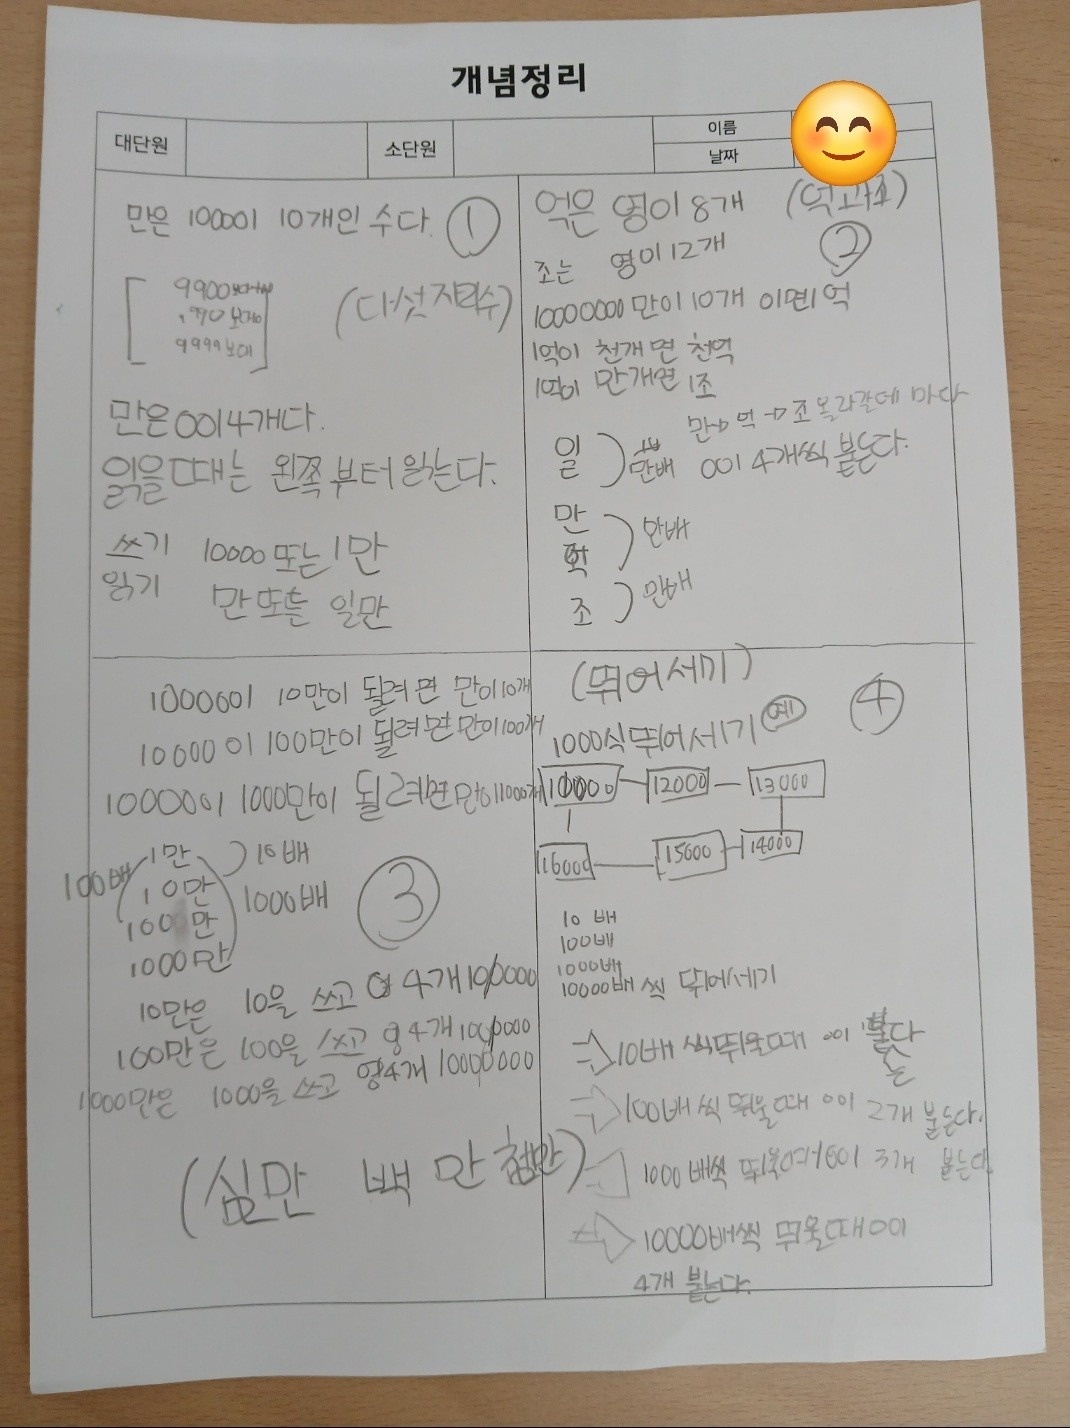 개념정리
대단원 소단원 이름
날짜
만은 1000이 10개인 수다. ①
9900보다
9990보다
9999보다
(다섯자리수)
만은 0이 4개다.
읽을때는 왼쪽부터 읽는다.
쓰기 10000 또는 1만
읽기 만 또는 일만
억은 영이 8개 (억과 조)
조는 영이 12개 ②
10000000만이 10개 이면 1억
1억이 천개면 천억
1억이 만개면 1조
만→억→조 올라갈데 마다
0이 4개씩 붙는다.
일
만배
만
억
만배
조
만배
10000이 10만이 될려면 만이 10개
10000이 100만이 될려면 만이 100개
10000이 1000만이 될려면 만이 1000개
1만
10배
100배
10만
1000배
③
100만
1000만
10만은 10을 쓰고 영 4개 100000
100만은 100을 쓰고 영 4개 1000000
1000만은 1000을 쓰고 영4개 10000000
(십만 백만 천만)
(뛰어세기) ④
1000식 뛰어세기 예
12000 13000
16000 15000 14000
10배
100배
1000배
10000배 씩 뛰어세기
10배씩 뛰울때 0이 붙는다
100배씩 뛰울때 0이 2개 붙는다.
1000배씩 뛰울때 0이 3개 붙는다
10000배씩 뛰울때 0이
4개 붙는다.